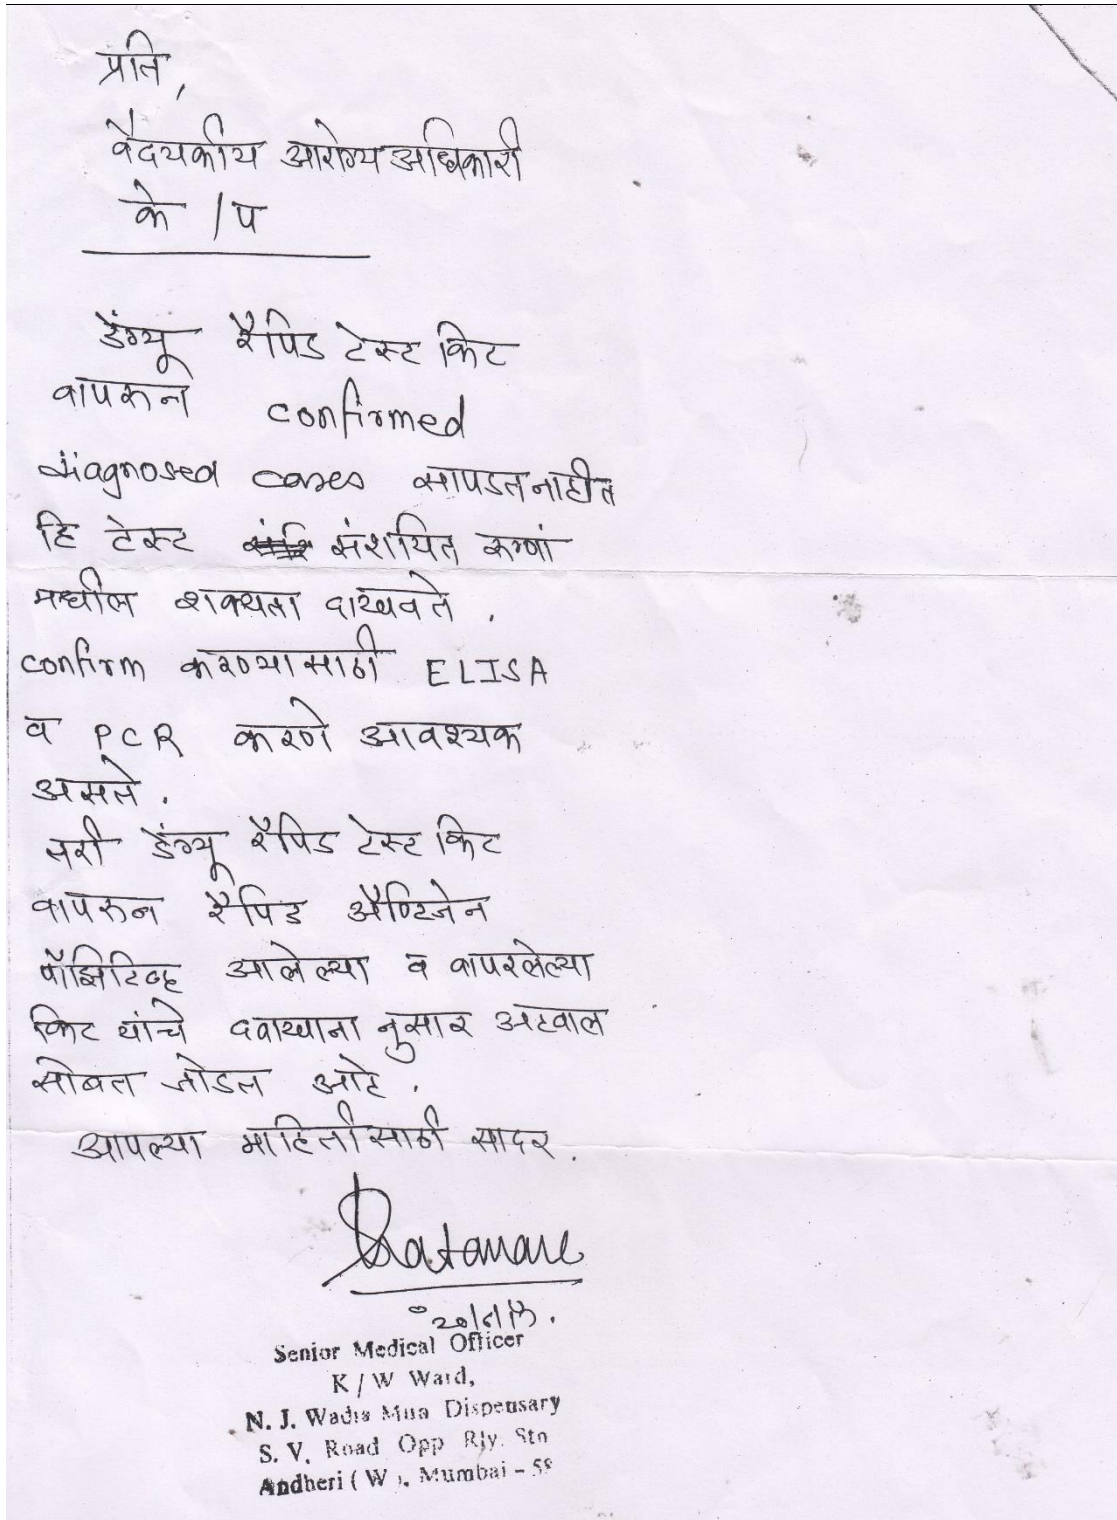 प्रति,
वैदयकीय आरोग्य अधिकारी
के /प
डेंग्यू रैपिड टेस्ट किट
वापरुन confirmed
diagnosed cases सापडत नाहीत
हि टेस्ट संशयित रुग्णां
मधील शक्यता दाखवते.
confirm करण्यासाठी ELISA
व PCR करणे आवश्यक
असते.
तरी डेंग्यू रॅपिड टेस्ट किट
वापरुन रैपिड अँण्टिजेन
पॉझिटिव्ह आलेल्या व वापरलेल्या
किट यांचे दवाखाना नुसार अहवाल
सोबत जोडत आहे.
आपल्या माहितीसाठी सादर.
Senior Medical Officer
K / W Ward,
N. J. Wadia Mun Dispensary
S. V. Road Opp Rly. Stn
Andheri ( W ), Mumbai - 58